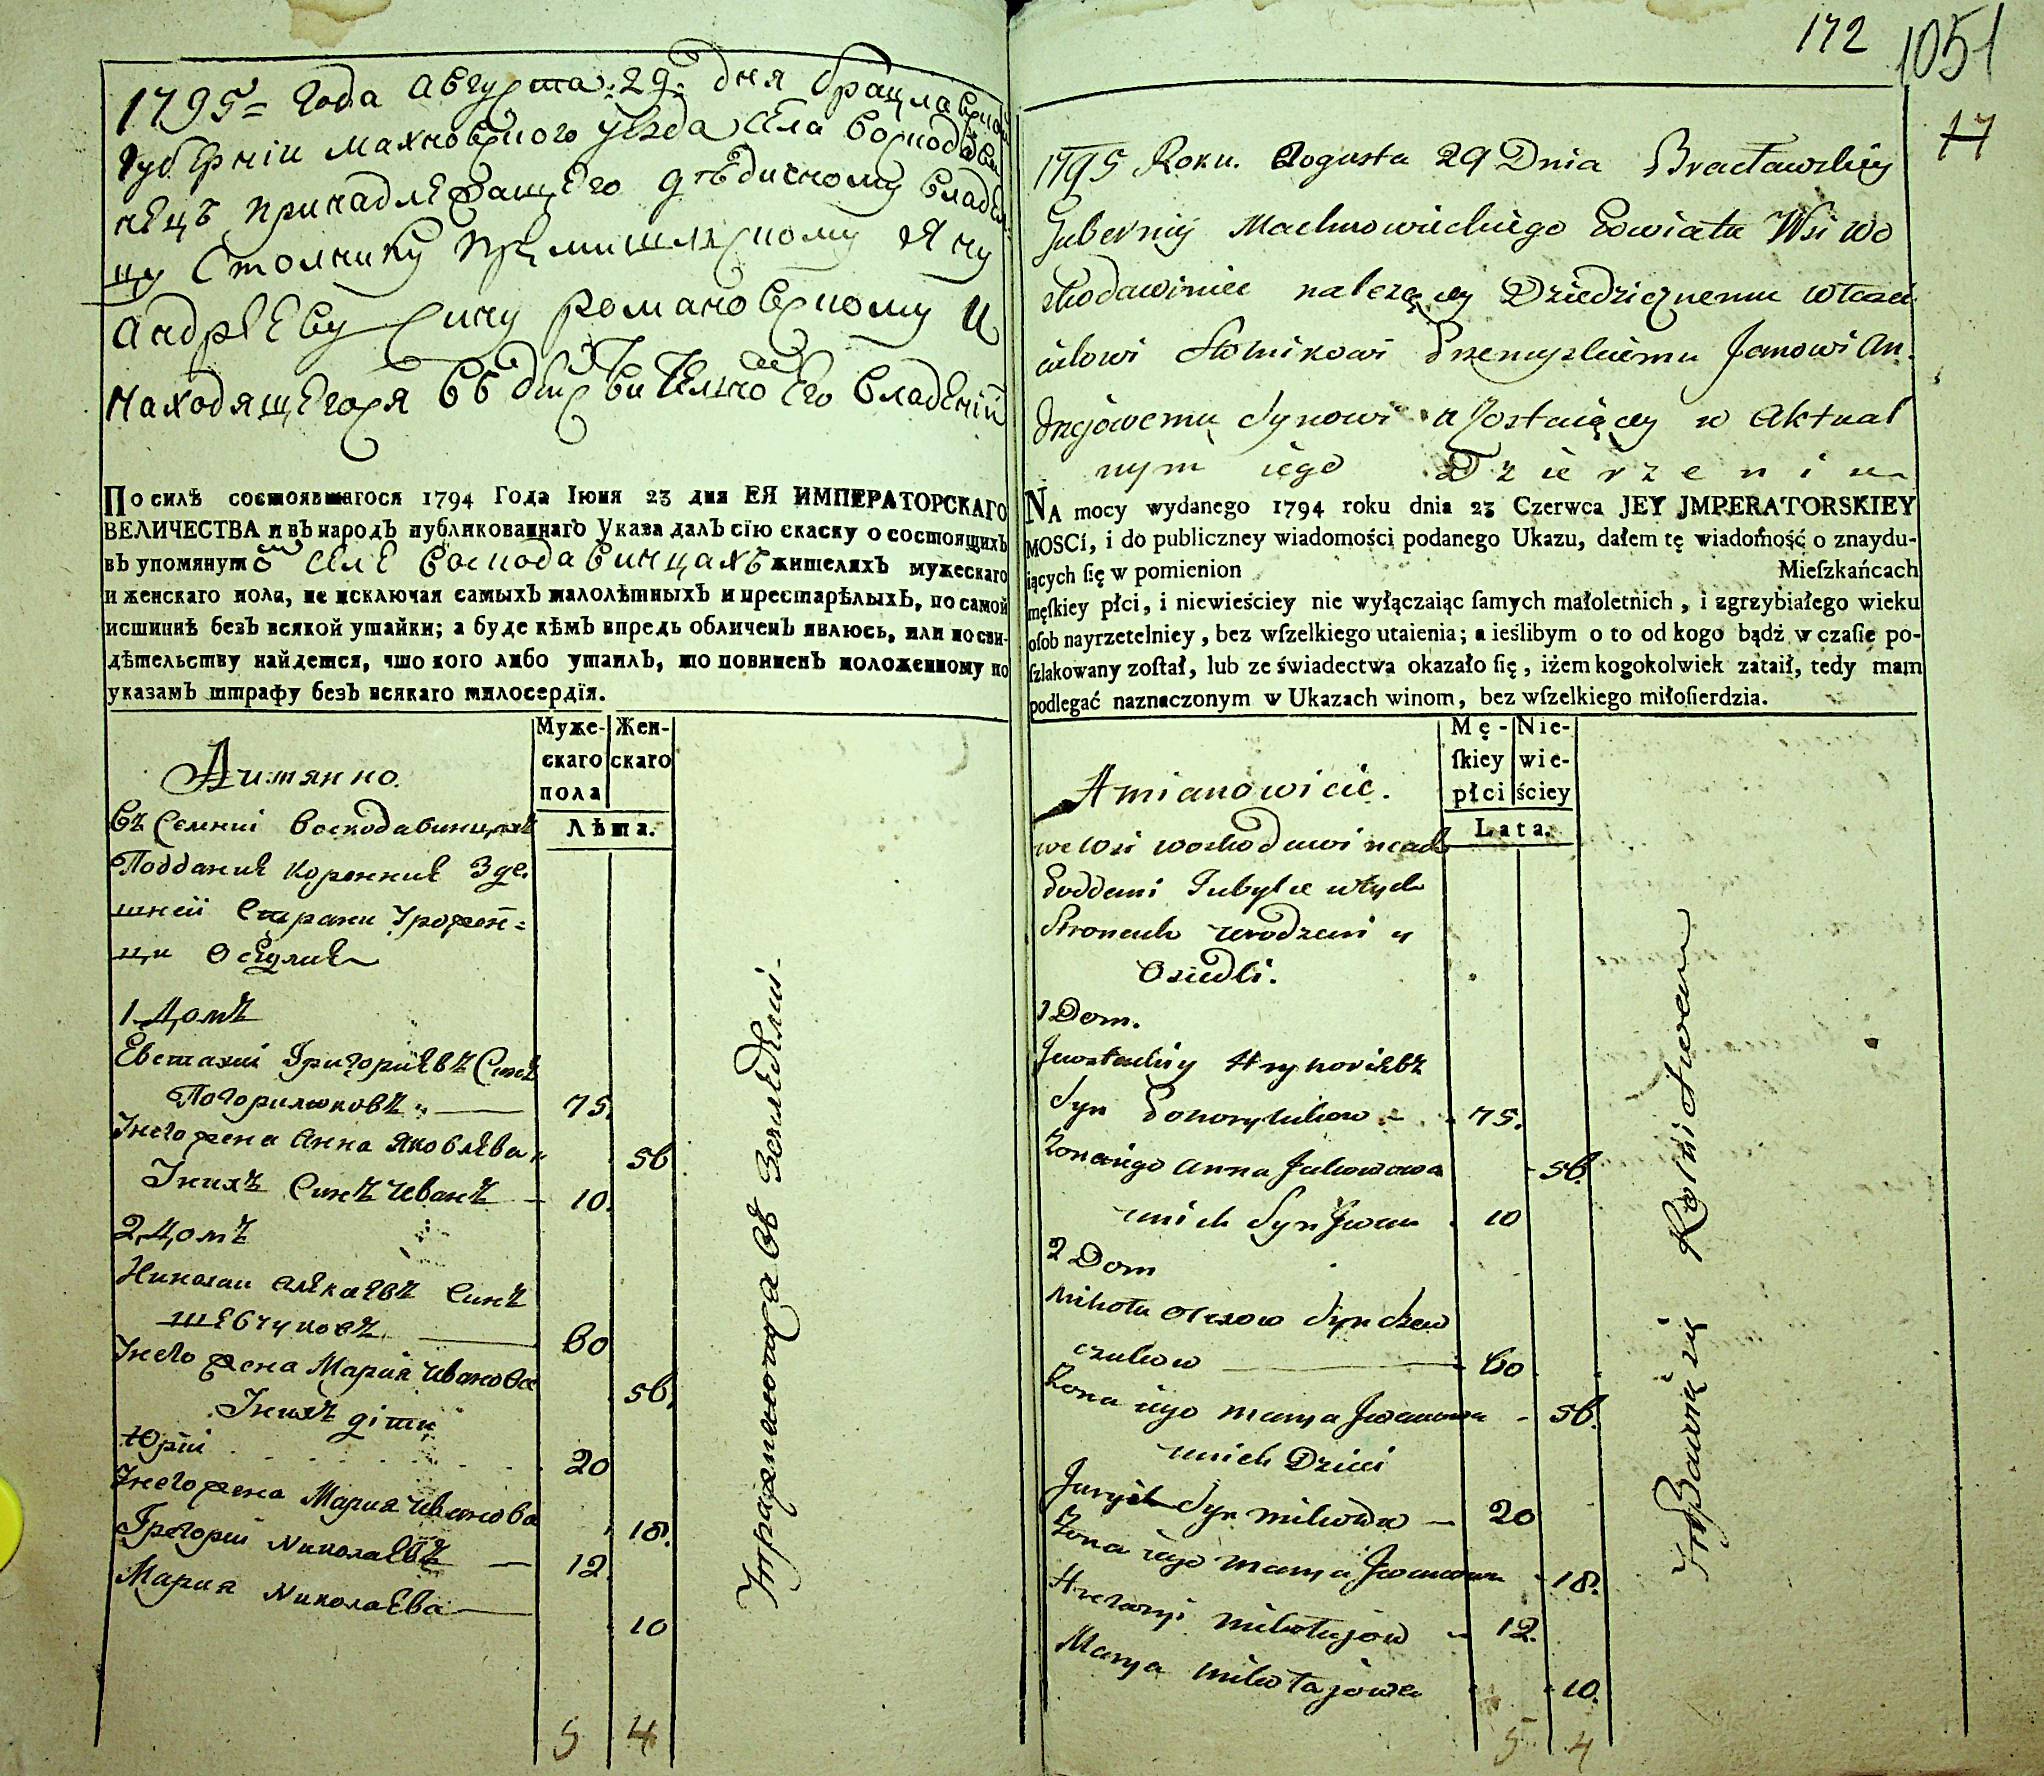 1795= Года Августа: 29: дня Брацлавской
Губерніи Махновского уезда села Воскодави
нецъ принадлежащего дѣдичному владел
цу Столнику Пржемишлскому Яну
Андрѣеву сину Романовскому и
находящегося въ действительно его владеній
По силѣ состоявшагося 1794 Года Іюня 23 дня ЕЯ ИМПЕРАТОРСКАГО
ВЕЛИЧЕСТВА и въ народъ публикованнаго Указа далъ сїю скаску о состоящихъ
въ упомянутомъ селе Воскодавинцахъ жителяхъ мужескаго
и женскаго пола, не исключая самыхъ малолѣтныхъ и престарѣлыхъ, по самой
истиннѣ безъ всякой утайки; а буде кѣмъ впредь обличенъ явлюсь, или по сви-
дѣтельству найдется, что кого либо утаилъ, то повиненъ положенному по
указамъ штрафу безъ всякаго милосердїя.
Муже- Жен-
скаго скаго
пола
Лѣта.
А имянно.
Въ Селенії Воскодавинцахъ
Поддание коренние зде.
шней Страни Урожен=
ци Оседлие
1 Домъ
Евстахий Григориевъ Синъ
Погорилюковъ 75.
У него жена Анна Яковлева 56
У нихъ Синъ Иванъ 10.
2 Домъ
Николай Алекаевъ Синъ
Шевчуковъ 60
У него жена Мария Иванова 56.
У нихъ діти
Юрій 20
У него жена Мария Иванова 18.
Грегорій Николаевъ 12.
Мария Николаева 10
5 4
172 1051
17
1795 Roku. Augusta 29 Dnia Bracławskiey
Gubernij Machnowieckiego Powiatu Wsi Wo
skodawiniec należącey Dziedzicznemu Właści
cielowi Stolnikowi Przemyskiemu Janowi An.
drzejowemu Synowi a Zostaiącey w Aktual
nym iego Dzierzeniu
NA mocy wydanego 1794 roku dnia 23 Czerwca JEY JMPERATORSKIEY
MOSCí, i do publiczney wiadomości podanego Ukazu, dałem tę wiadomość o znaydu-
iących ſię w pomienion Mieſzkańcach
męſkiey płci, i niewieściey nie wyłączaiąc ſamych małoletnich, i zgrzybiałego wieku
oſob nayrzetelniey, bez wſzelkiego utaienia; a ieślibym o to od kogo bądź w czaſie po-
ſzlakowany zoſtał, lub ze świadectwa okazało ſię, iżem kogokolwiek zataił, tedy mam
podlegać naznaczonym w Ukazach winom, bez wſzelkiego miłoſierdzia.
Mę- Nie-
ſkiey wie-
płci ściey
Lata.
A mianowicie.
we Wsi Woskodawincach
Poddani Tubylce w tych
Stronach urodzeni y
Osiedli.
1 Dom.
Jewstachiy Hryhoriewz
Syn Pohorylukow 75.
Zona iego Anna Jakowowa 56.
u nich Syn Jwan 10
2 Dom
Mikoła Olexow Syn Szew
czukow 60
Zona iego Marya Jwanowa 56.
u nich Dzieci
Jurych Syn Mikołow 20
Zona iego Marya Jwanowa 18.
Hrehoryi Mikołajow 12.
Marya Mikołajowa 10.
5 4